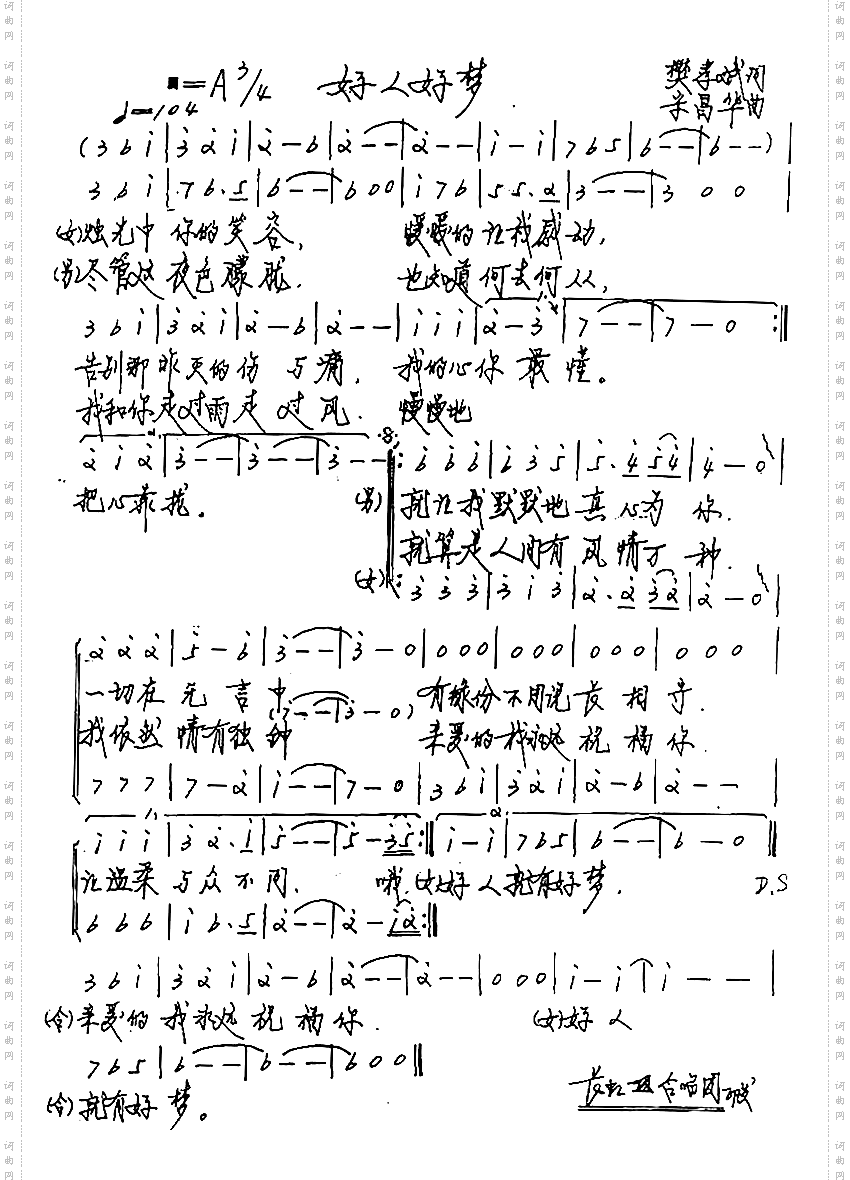 =A 3/4 好人好梦 樊孝斌词
♩=104 宋昌华曲
(3 6 i | 3 2 i | 2 - 6 | 2 - - | 2 - - | i - i | 7 6 5 | 6 - - | 6 - -) |
3 6 i | 7 6. 5 | 6 - - | 6 0 0 | i 7 6 | 5 5. 2 | 3 - - | 3 0 0 |
(女)烛光中 你的笑容, 暖暖的让我感动,
(男)尽管这夜色朦胧. 也知道何去何从,
3 6 i | 3 2 i | 2 - 6 | 2 - - | i i i | 2 - 3 | 7 - - | 7 - 0 :||
告别那昨天的伤与痛, 我的心你最懂。
我和你走过雨走过风. 慢慢地
2 i 2 | 3 - - | 3 - - | 3 - - |: 6 6 6 | 6 3 5 | 5. 4 5 4 | 4 - 0 |
把心靠拢。 (男) 就让我默默地真心为你.
就算是人间有风情万种.
(女) : 3 3 3 | 3 i 3 | 2. 2 3 2 | 2 - 0 |
2 2 2 | 5 - 6 | 3 - - | 3 - 0 | 0 0 0 | 0 0 0 | 0 0 0 | 0 0 0 |
一切在无言中 (7 - - | 3 - 0) 有缘份不用说长相守.
我依然情有独钟 亲爱的我永远祝福你.
7 7 7 | 7 - 2 | i - - | 7 - 0 | 3 6 i | 3 2 i | 2 - 6 | 2 - - |
i i i | 3 2. i | 5 - - | 5 - 3 5 :|| i - i | 7 6 5 | 6 - - | 6 - 0 ||
让温柔与众不同. 哦 (女)好人就有好梦. D.S
6 6 6 | i 6. 5 | 2 - - | 2 - i 2 :||
3 6 i | 3 2 i | 2 - 6 | 2 - - | 2 - - | 0 0 0 | i - i | i - - |
(合)亲爱的我永远祝福你. (女)好人
7 6 5 | 6 - - | 6 - - | 6 0 0 ||
(合)就有好梦。 合唱团
词曲网